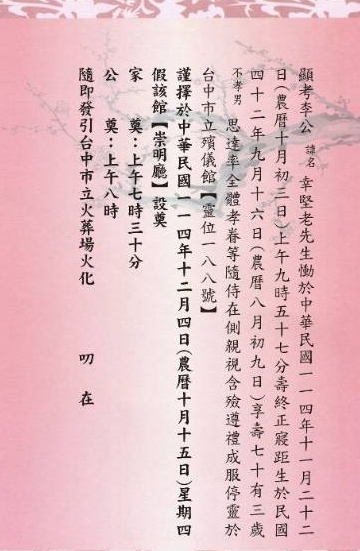 顯考李公 諱名 幸堅老先生慟於中華民國一一四年十一月二十二
日(農曆十月初三日)上午九時五十七分壽終正寢距生於民國
四十二年九月十六日(農曆八月初九日)享壽七十有三歲
不孝男 思達率全體孝眷等隨侍在側親視含殮遵禮成服停靈於
台中市立殯儀館【靈位一八八號】
謹擇於中華民國一一四年十二月四日(農曆十月十五日)星期四
假該館【崇明廳】設奠
家 奠：上午七時三十分
公 奠：上午八時
隨即發引台中市立火葬場火化 叨 在